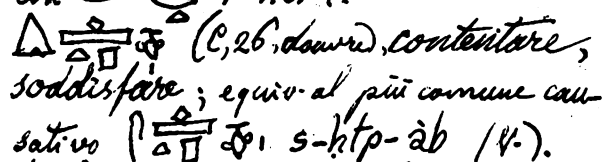 (C, 26, Louvre), contentare,
soddisfare; equiv. al più comune cau
sativo s-ḥtp-àb (V.).